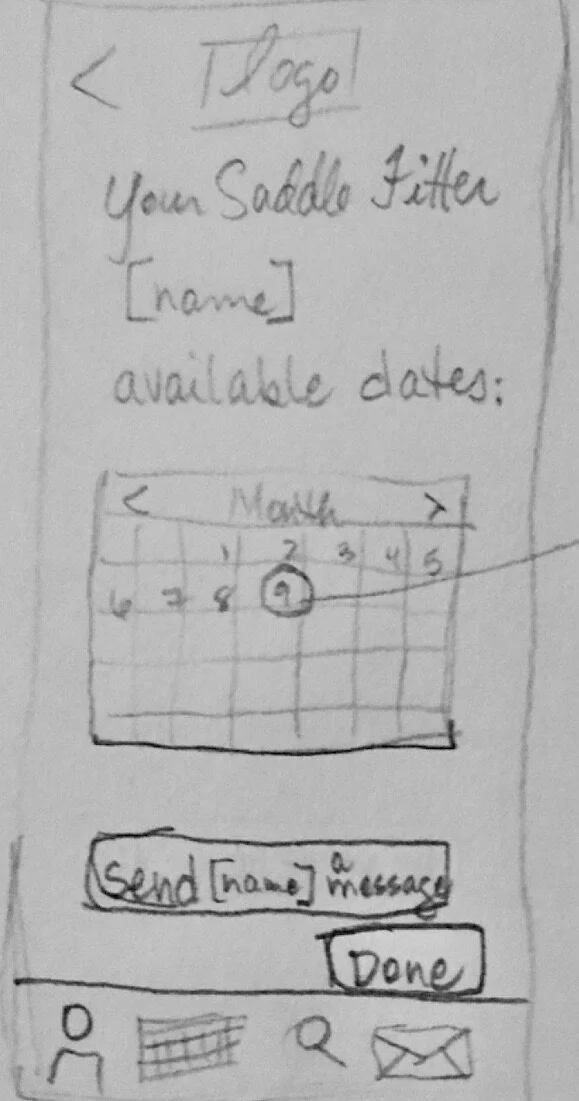 < logo
Your Saddle Fitter
[name]
available dates:
< Month >
1 2 3 4 5
6 7 8 9
Send [name] a message
Done